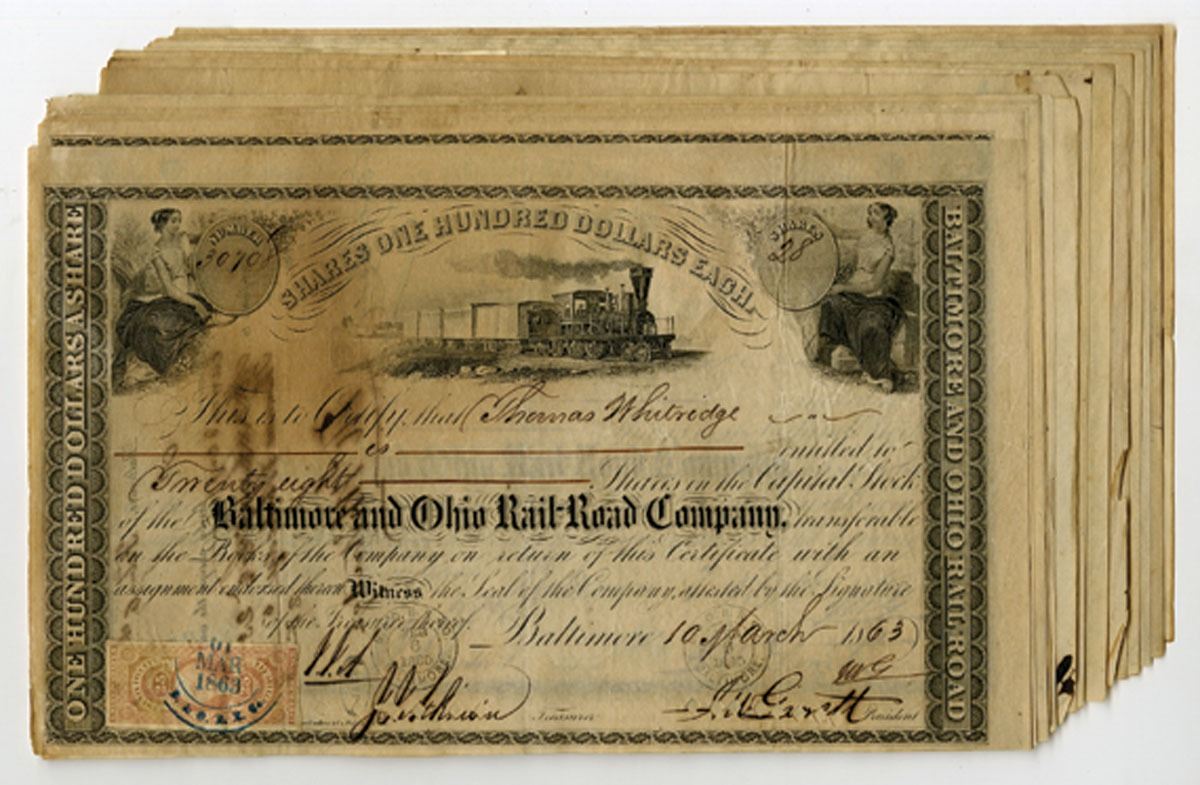 SHARES ONE HUNDRED DOLLARS EACH.
NUMBER
3070
SHARES
28
ONE HUNDRED DOLLARS A SHARE
BALTIMORE AND OHIO RAIL ROAD
This is to Certify, that Thomas Whitridge
is entitled to
Twenty eight Shares in the Capital Stock
of the Baltimore and Ohio Rail-Road Company, transferable
on the Books of the Company on return of this Certificate with an
assignment endorsed thereon Witness the Seal of the Company, attested by the Signature
of the Treasurer thereof.
Baltimore 10 March 1863
MAR
1863
Treasurer
President